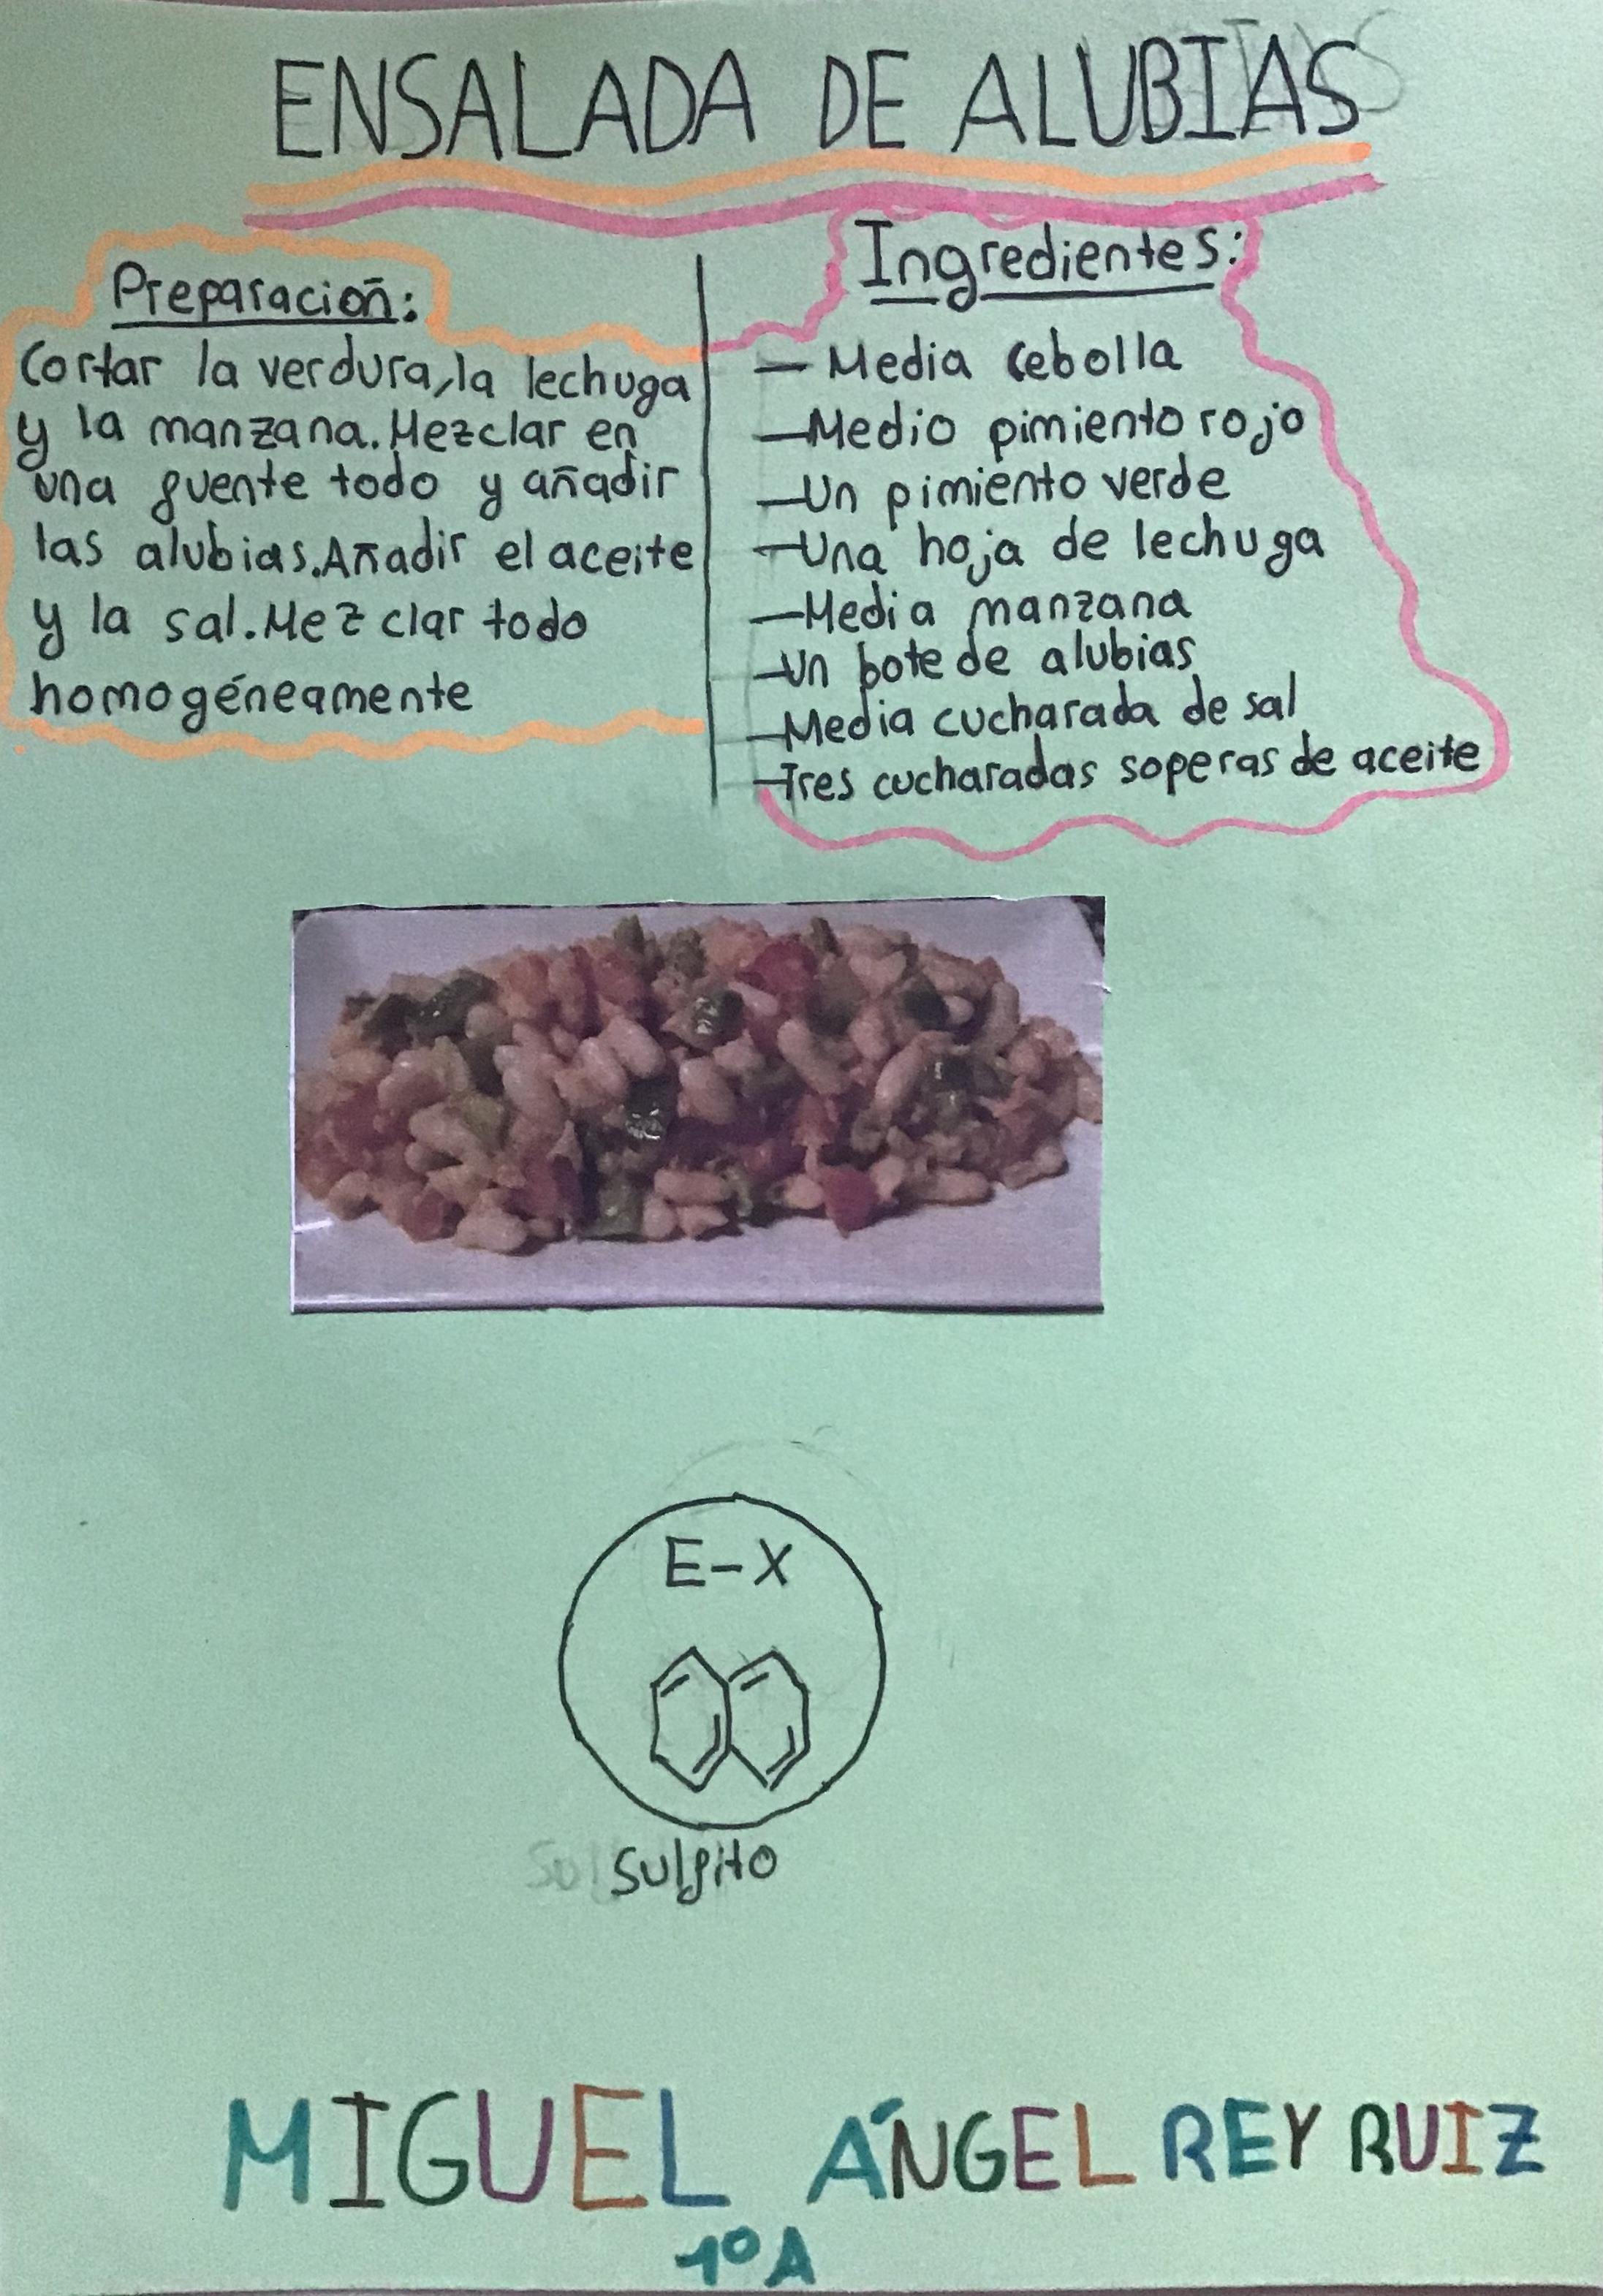 ENSALADA DE ALUBIAS
Preparación:
Cortar la verdura, la lechuga
y la manzana. Mezclar en
una fuente todo y añadir
las alubias. Añadir el aceite
y la sal. Mezclar todo
homogéneamente
Ingredientes:
— Media cebolla
— Medio pimiento rojo
— Un pimiento verde
— Una hoja de lechuga
— Media manzana
— Un bote de alubias
— Media cucharada de sal
— Tres cucharadas soperas de aceite
E-X
Sulfito
MIGUEL ÁNGEL REY RUIZ
1º A